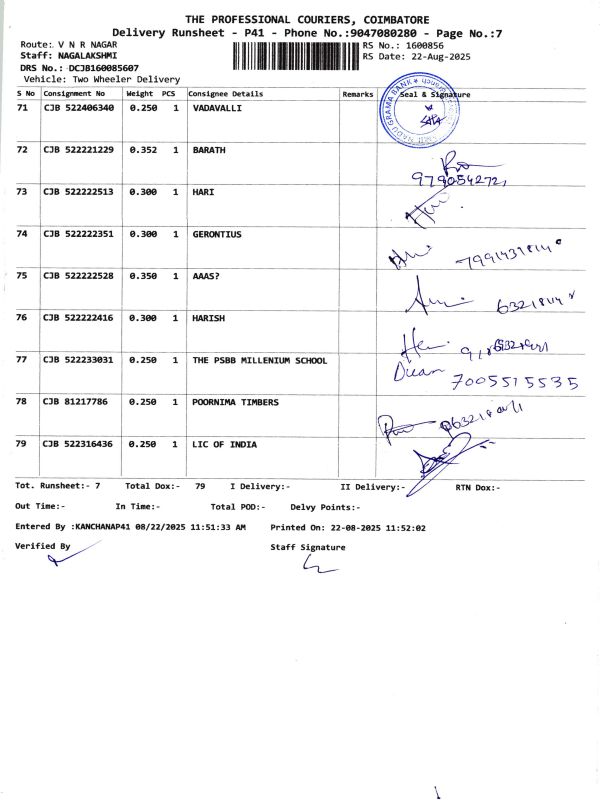 THE PROFESSIONAL COURIERS, COIMBATORE
Delivery Runsheet - P41 - Phone No.:9047080280 - Page No.:7
Route: V N R NAGAR RS No.: 1600856
Staff: NAGALAKSHMI RS Date: 22-Aug-2025
DRS No.: DCJB160085607
Vehicle: Two Wheeler Delivery
S No Consignment No Weight PCS Consignee Details Remarks Seal & Signature
71 CJB 522406340 0.250 1 VADAVALLI
72 CJB 522221229 0.352 1 BARATH
73 CJB 522222513 0.300 1 HARI
74 CJB 522222351 0.300 1 GERONTIUS
75 CJB 522222528 0.350 1 AAAS?
76 CJB 522222416 0.300 1 HARISH
77 CJB 522233031 0.250 1 THE PSBB MILLENIUM SCHOOL
7005515535
78 CJB 81217786 0.250 1 POORNIMA TIMBERS
79 CJB 522316436 0.250 1 LIC OF INDIA
Tot. Runsheet:- 7 Total Dox:- 79 I Delivery:- II Delivery:- RTN Dox:-
Out Time:- In Time:- Total POD:- Delvy Points:-
Entered By :KANCHANAP41 08/22/2025 11:51:33 AM Printed On: 22-08-2025 11:52:02
Verified By Staff Signature